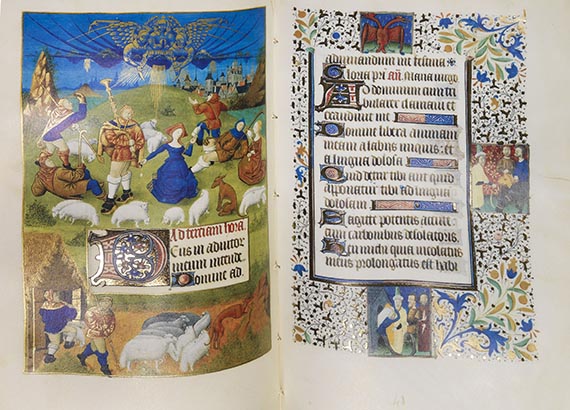 Ad tertiam hora
Deus in adiutor
meum intende
Domine ad
adiuvandum me festina
Gloria pri añ Maria virgo
Ad dominum cum tri
bularer clamavi et
exaudivit me
Domine libera animam
meam a labiis iniquis et
a lingua dolosa
Quid detur tibi aut quid
apponatur tibi ad linguam
dolosam
Sagitte potentis acute
cum carbonibus desolatoriis
Heu michi quia incolatus
meus prolongatus est habi